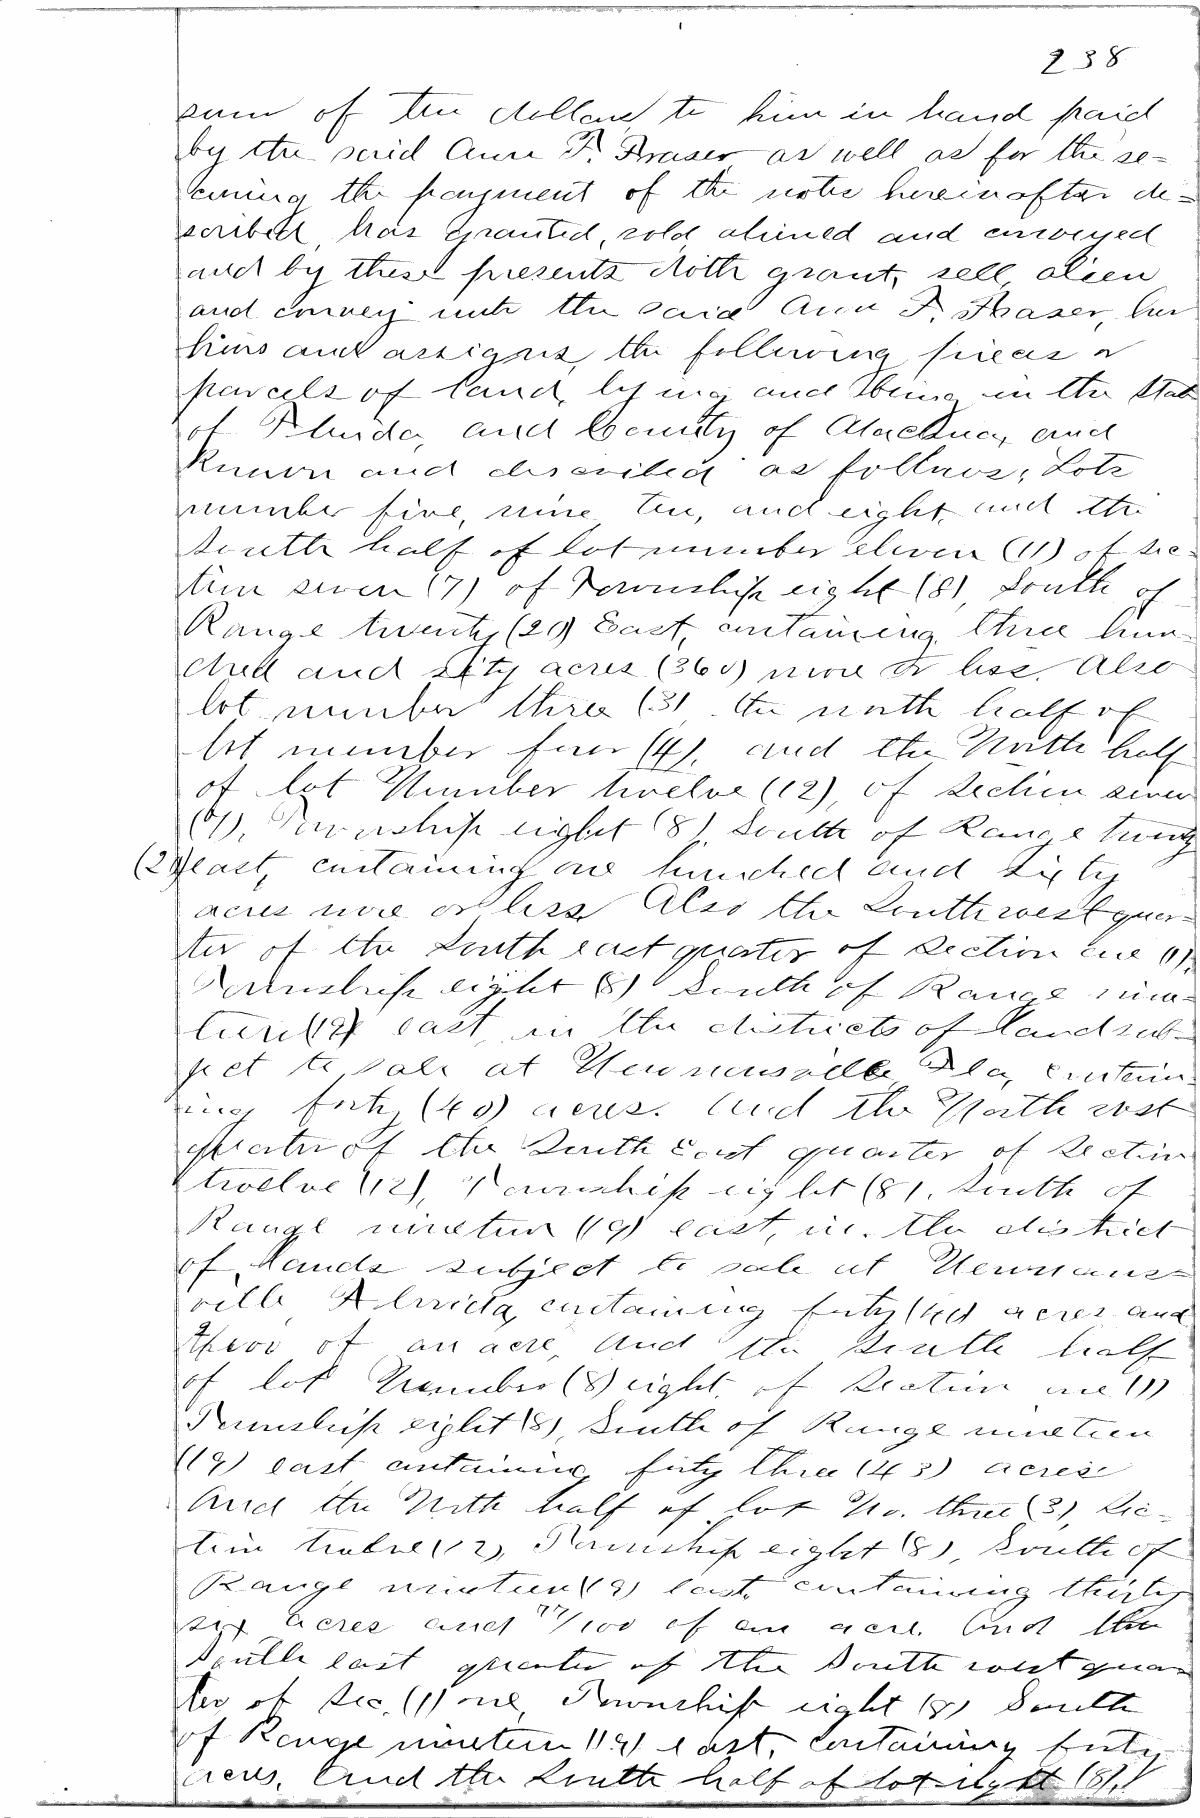 238
sum of ten dollars to him in hand paid
by the said Ann F. Fraser as well as for the se=
curing the payment of the notes hereinafter de=
scribed, has granted, sold aliened and conveyed
and by these presents doth grant, sell, alien
and convey unto the said Ann F. Fraser, her
heirs and assigns, the following pieces or
parcels of land, lying and being in the State
of Florida, and County of Alachua, and
known and described as follows: Lots
number five, nine, ten, and eight, and the
South half of lot number eleven (11) of sec-
tion seven (7) of Township eight (8), South of
Range twenty (20) East, containing three hun-
dred and sixty acres (360) more or less. Also
lot number three (3) the north half of
lot number four (4), and the North half
of lot Number twelve (12), of section seven
(7), Township eight (8) South of Range twenty
(20) east, containing one hundred and sixty
acres more or less Also the South west quar=
ter of the South east quarter of section one (1),
Township eight (8) South of Range nine-
teen (19) east, in the districts of land sub-
ject to sale at Newnansville Fla, contain-
ing forty (40) acres. And the North west
quarter of the South East quarter of Section
twelve (12), Township eight (8), South of
Range nineteen (19) east, in the district
of lands subject to sale at Newnans=
ville, Florida, containing forty (40) acres and
of an acre, And the South half
of lot Number (8) eight, of Section one (1)
Township eight (8), South of Range nineteen
(19) east containing forty three (43) acres
And the North half of lot No. three (3), Sec-
tion twelve (12), Township eight (8), South of
Range nineteen (19) east, containing thirty
six acres and 77/100 of an acre. And the
South east quarter of the South west quar-
ter of Sec. (1) one, Township eight (8) South
of Range nineteen (19) east, containing forty
acres. And the South half of lot eight (8),